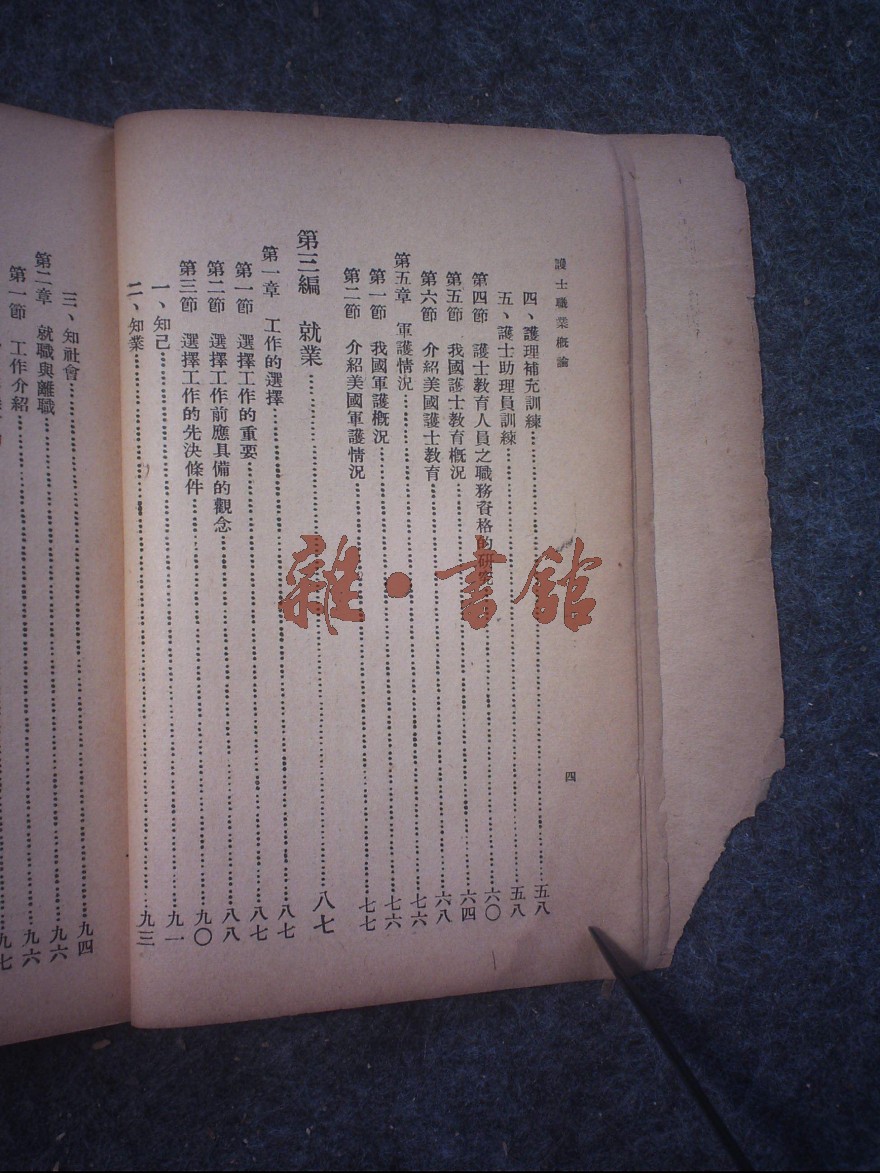 護士職業概論 四
四、護理補充訓練……五八
五、護士助理員訓練……五八
第四節 護士教育人員之職務資格的研究……六〇
第五節 我國護士教育概況……六四
第六節 介紹美國護士教育……六八
第五章 軍護情況……七六
第一節 我國軍護概況……七六
第二節 介紹美國軍護情況……七七
第三編 就業……八七
第一章 工作的選擇……八七
第一節 選擇工作的重要……八七
第二節 選擇工作前應具備的觀念……八八
第三節 選擇工作的先決條件……九〇
一、知己……九一
二、知業……九三
三、知社會……九四
第二章 就職與離職……九六
第一節 工作介紹……九六
九七
雜·書館